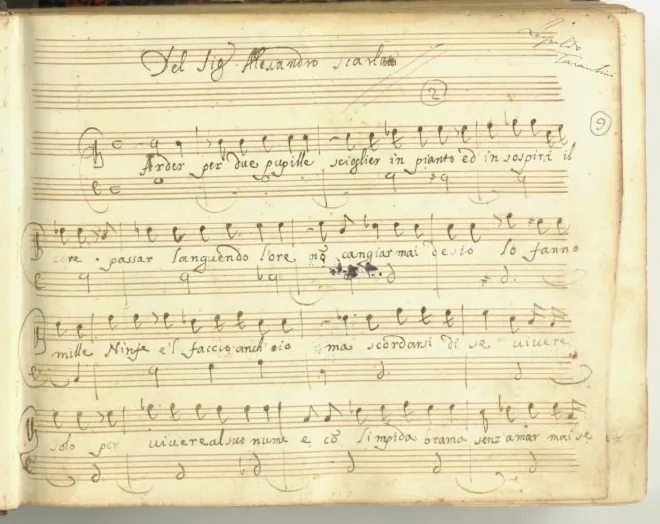 Del Sig.r Alesandro Scarlatti
Leopoldo
2
9
Arder per due pupille scioglier in pianto ed in sospiri il
core. passar languendo l'ore nõ cangiar mai desio lo fanno
mille Ninfe e'l faccio anch'io ma scordarsi di se vivere
solo per vivere al suo nume e cõ limpida brama senz'amar mai se